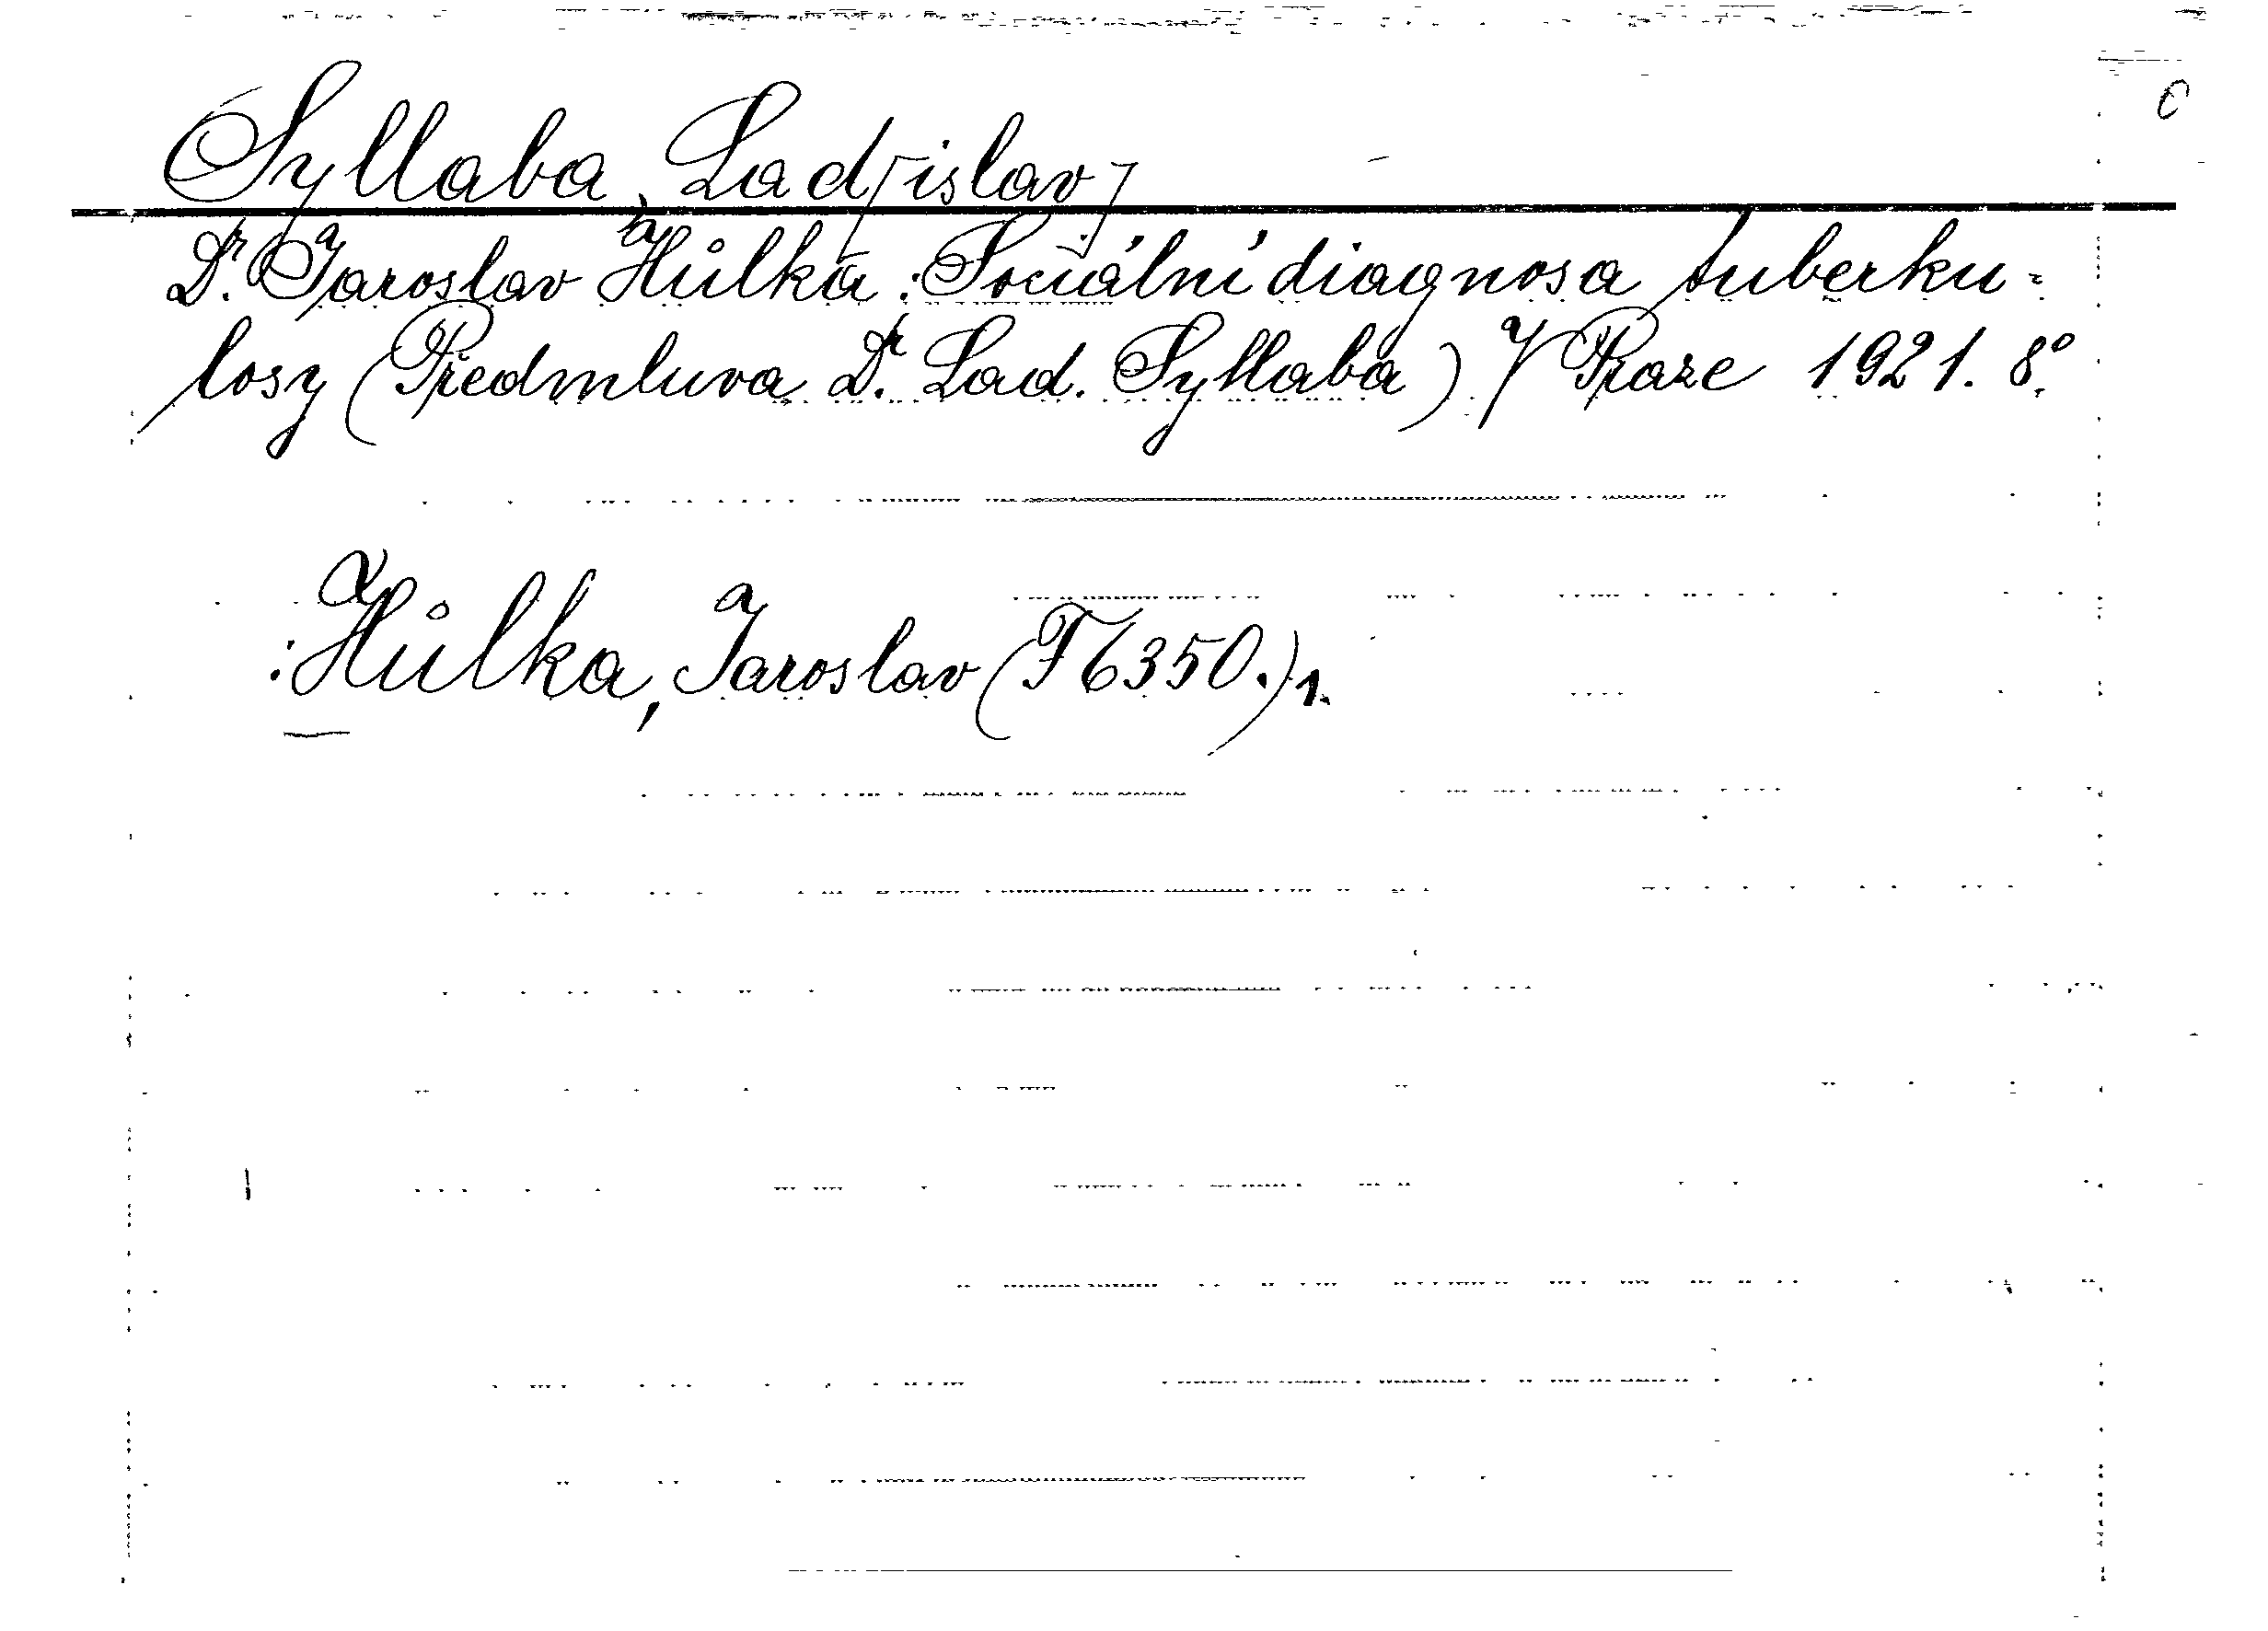 C
Syllaba, Lad[islav]
Dr. Jaroslav Hůlka: Sociální diagnosa tuberku-
losy (Předmluva Dr. Lad. Syllaba) V Praze 1921. 8°.
: Hůlka, Jaroslav (T 6350.) 1.